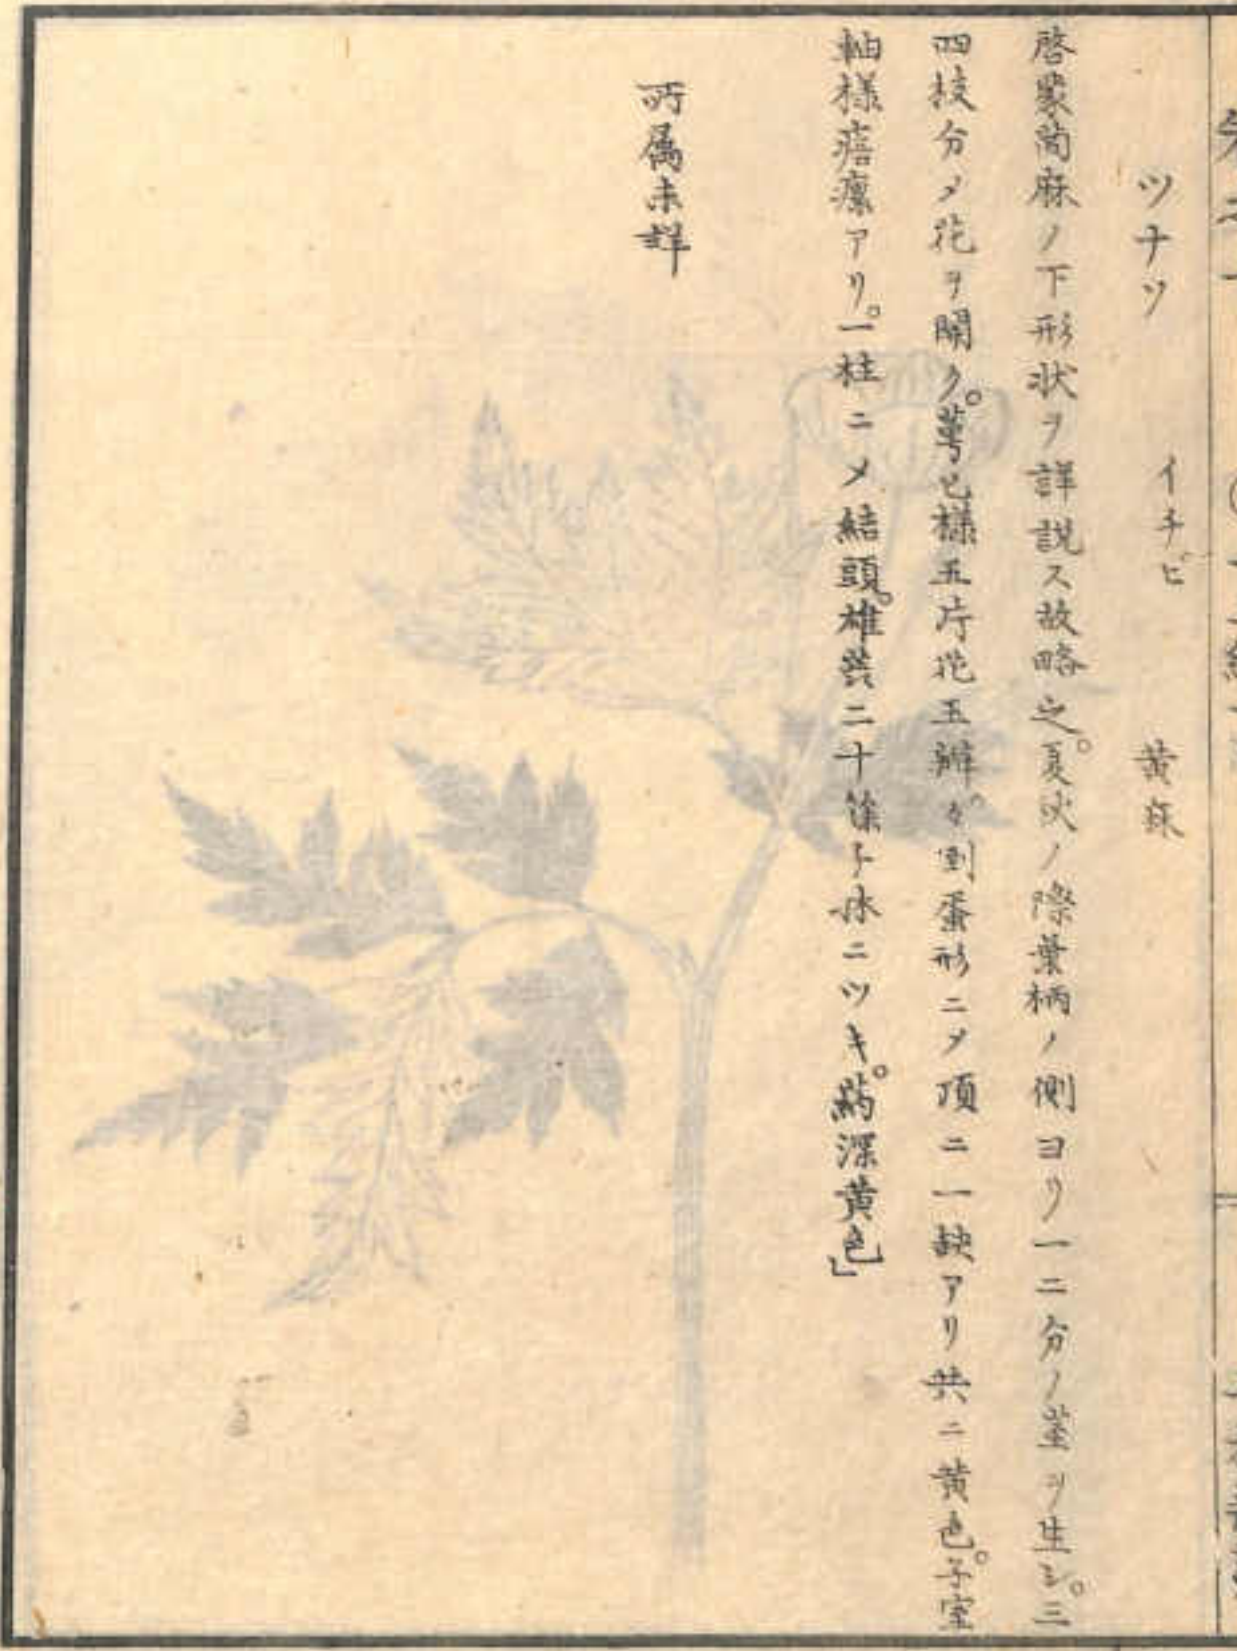 ツナソ　イチビ　黄麻
啓蒙䔛麻ノ下形状ヲ詳説ス故略之。夏秋ノ際葉柄ノ側ヨリ一二分ノ茎ヲ生シ。三
四枝分メ花ヲ開ク。萼色様五片花五瓣々倒蛋形ニメ頂ニ一缺アリ共ニ黄色。子室
軸様痦癗アリ。一柱ニメ結頭。雄蕊二十餘子床ニツキ。葯深黄色」
所属未詳